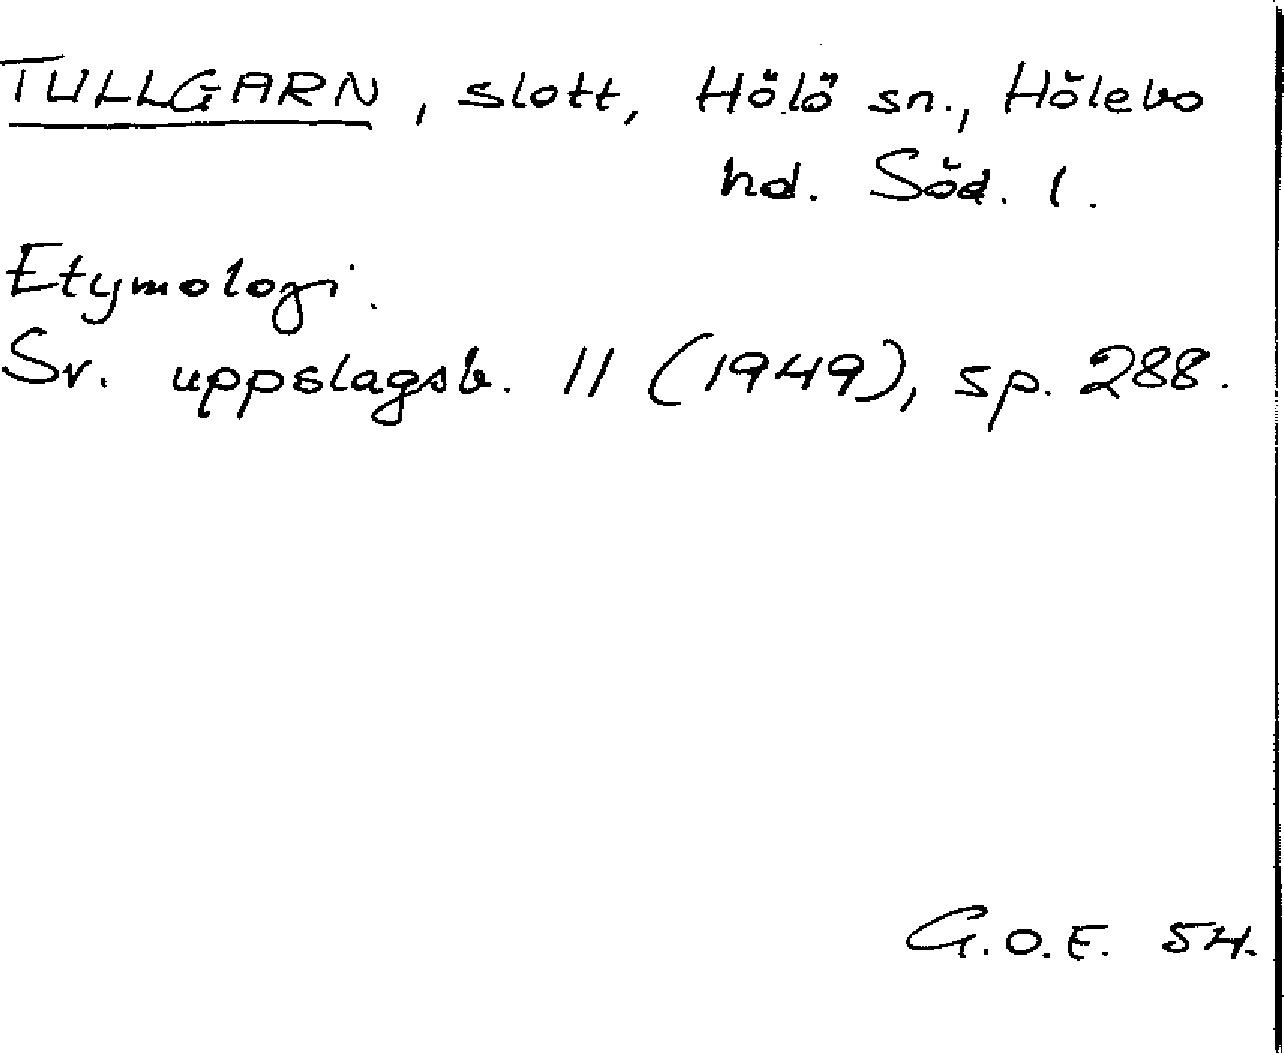 TULLGARN, slott, Hölö sn., Hölebo
hd. Söd. l.
Etymologi.
Sv. uppslagsb. 11 (1949), sp. 288.
G.O.E. 54.